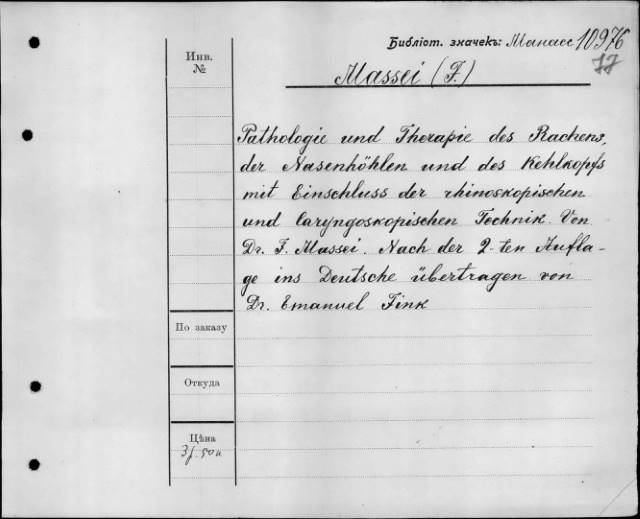 Библіот. значекъ: Манасс 10976
77
Инв.
№
Massei (F.)
Pathologie und Therapie des Rachens,
der Nasenhöhlen und des Kehlkopfs
mit Einschluss der rhinoskopischen
und laryngoskopischen Technik. Von
Dr. F. Massei. Nach der 2-ten Aufla-
ge ins Deutsche übertragen von
Dr. Emanuel Fink
По заказу
Откуда
Цѣна
3 р. 50 к